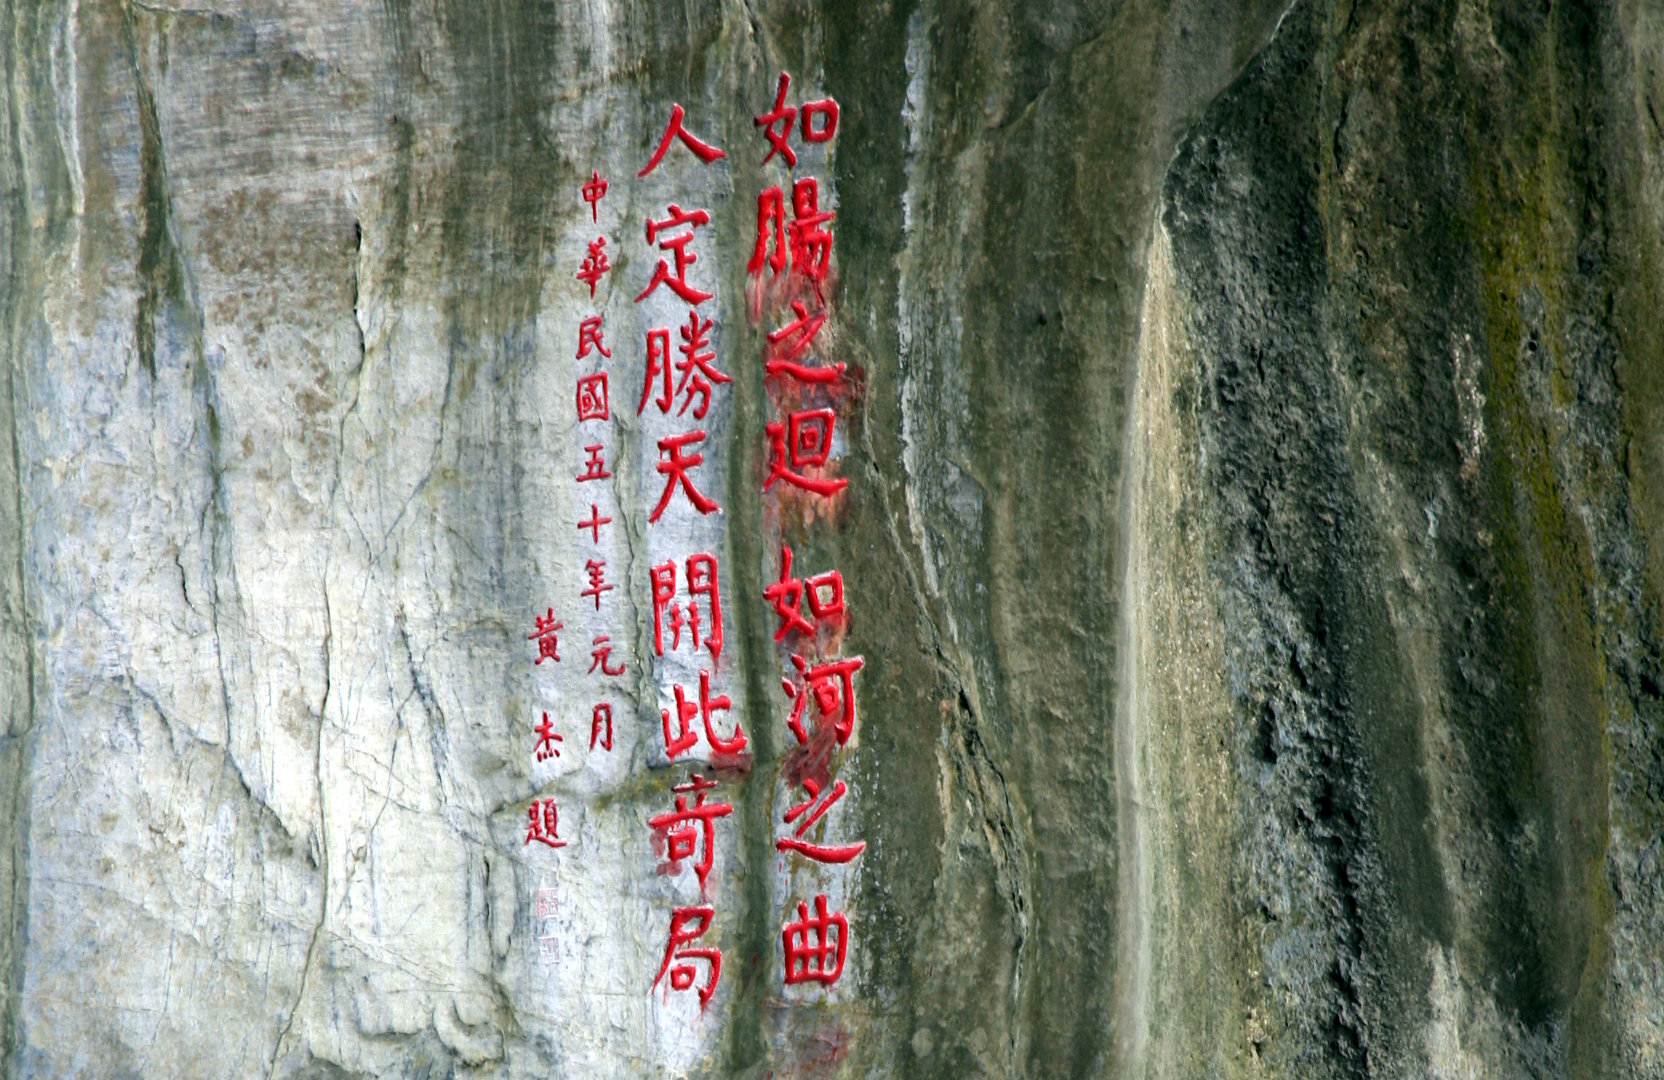 如腸之迴如河之曲
人定勝天開此奇局
中華民國五十年元月
黃杰題